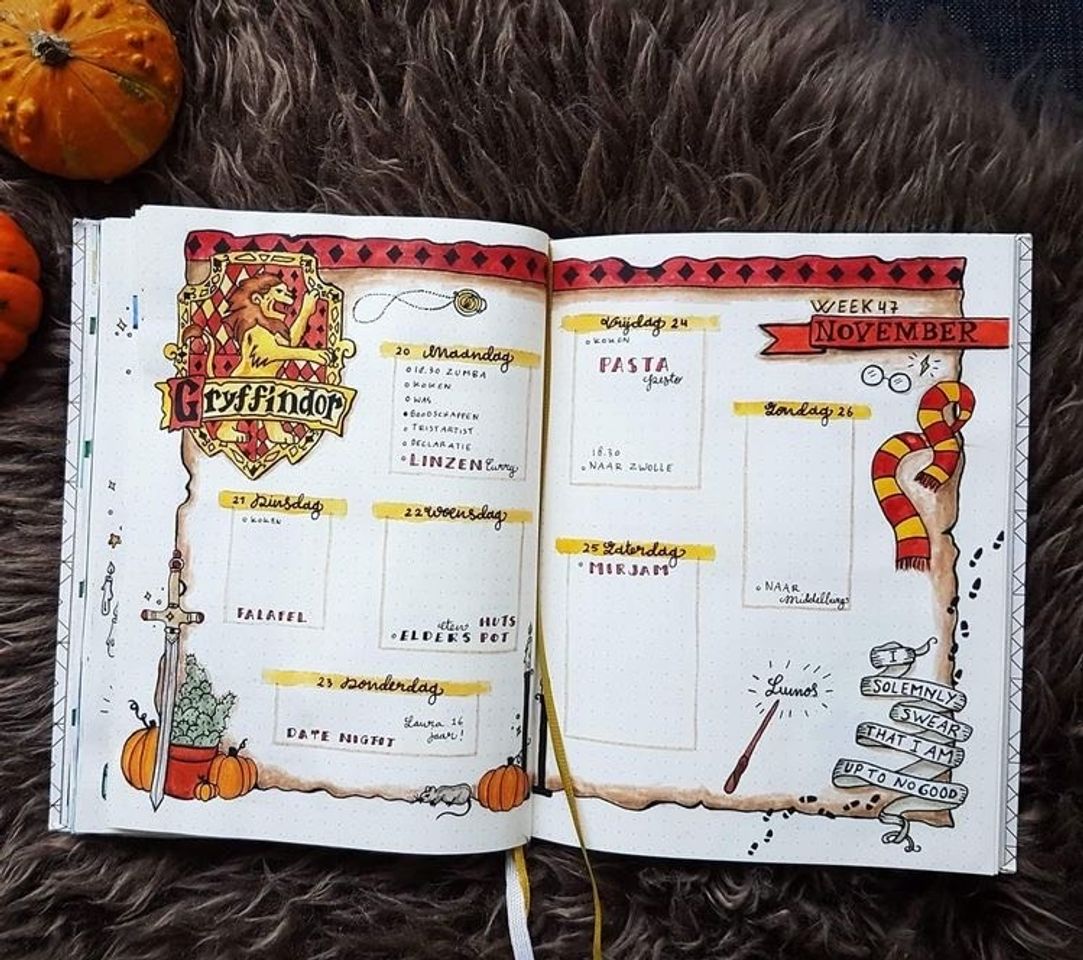 Gryffindor
20 Maandag
18.30 ZUMBA
KOKEN
WAS
BOODSCHAPPEN
TRISTARTIST
DECLARATIE
LINZEN curry
21 Dinsdag
KOKEN
FALAFEL
22 Woensdag
eten HUTS
ELDERS POT
23 Donderdag
Laura 16
jaar!
DATE NIGHT
Vrijdag 24
KOKEN
PASTA
pesto
18.30
NAAR ZWOLLE
25 Zaterdag
MIRJAM
WEEK 47
NOVEMBER
Zondag 26
NAAR
Middelburg
Lumos
I
SOLEMNLY
SWEAR
THAT I AM
UP TO NO GOOD